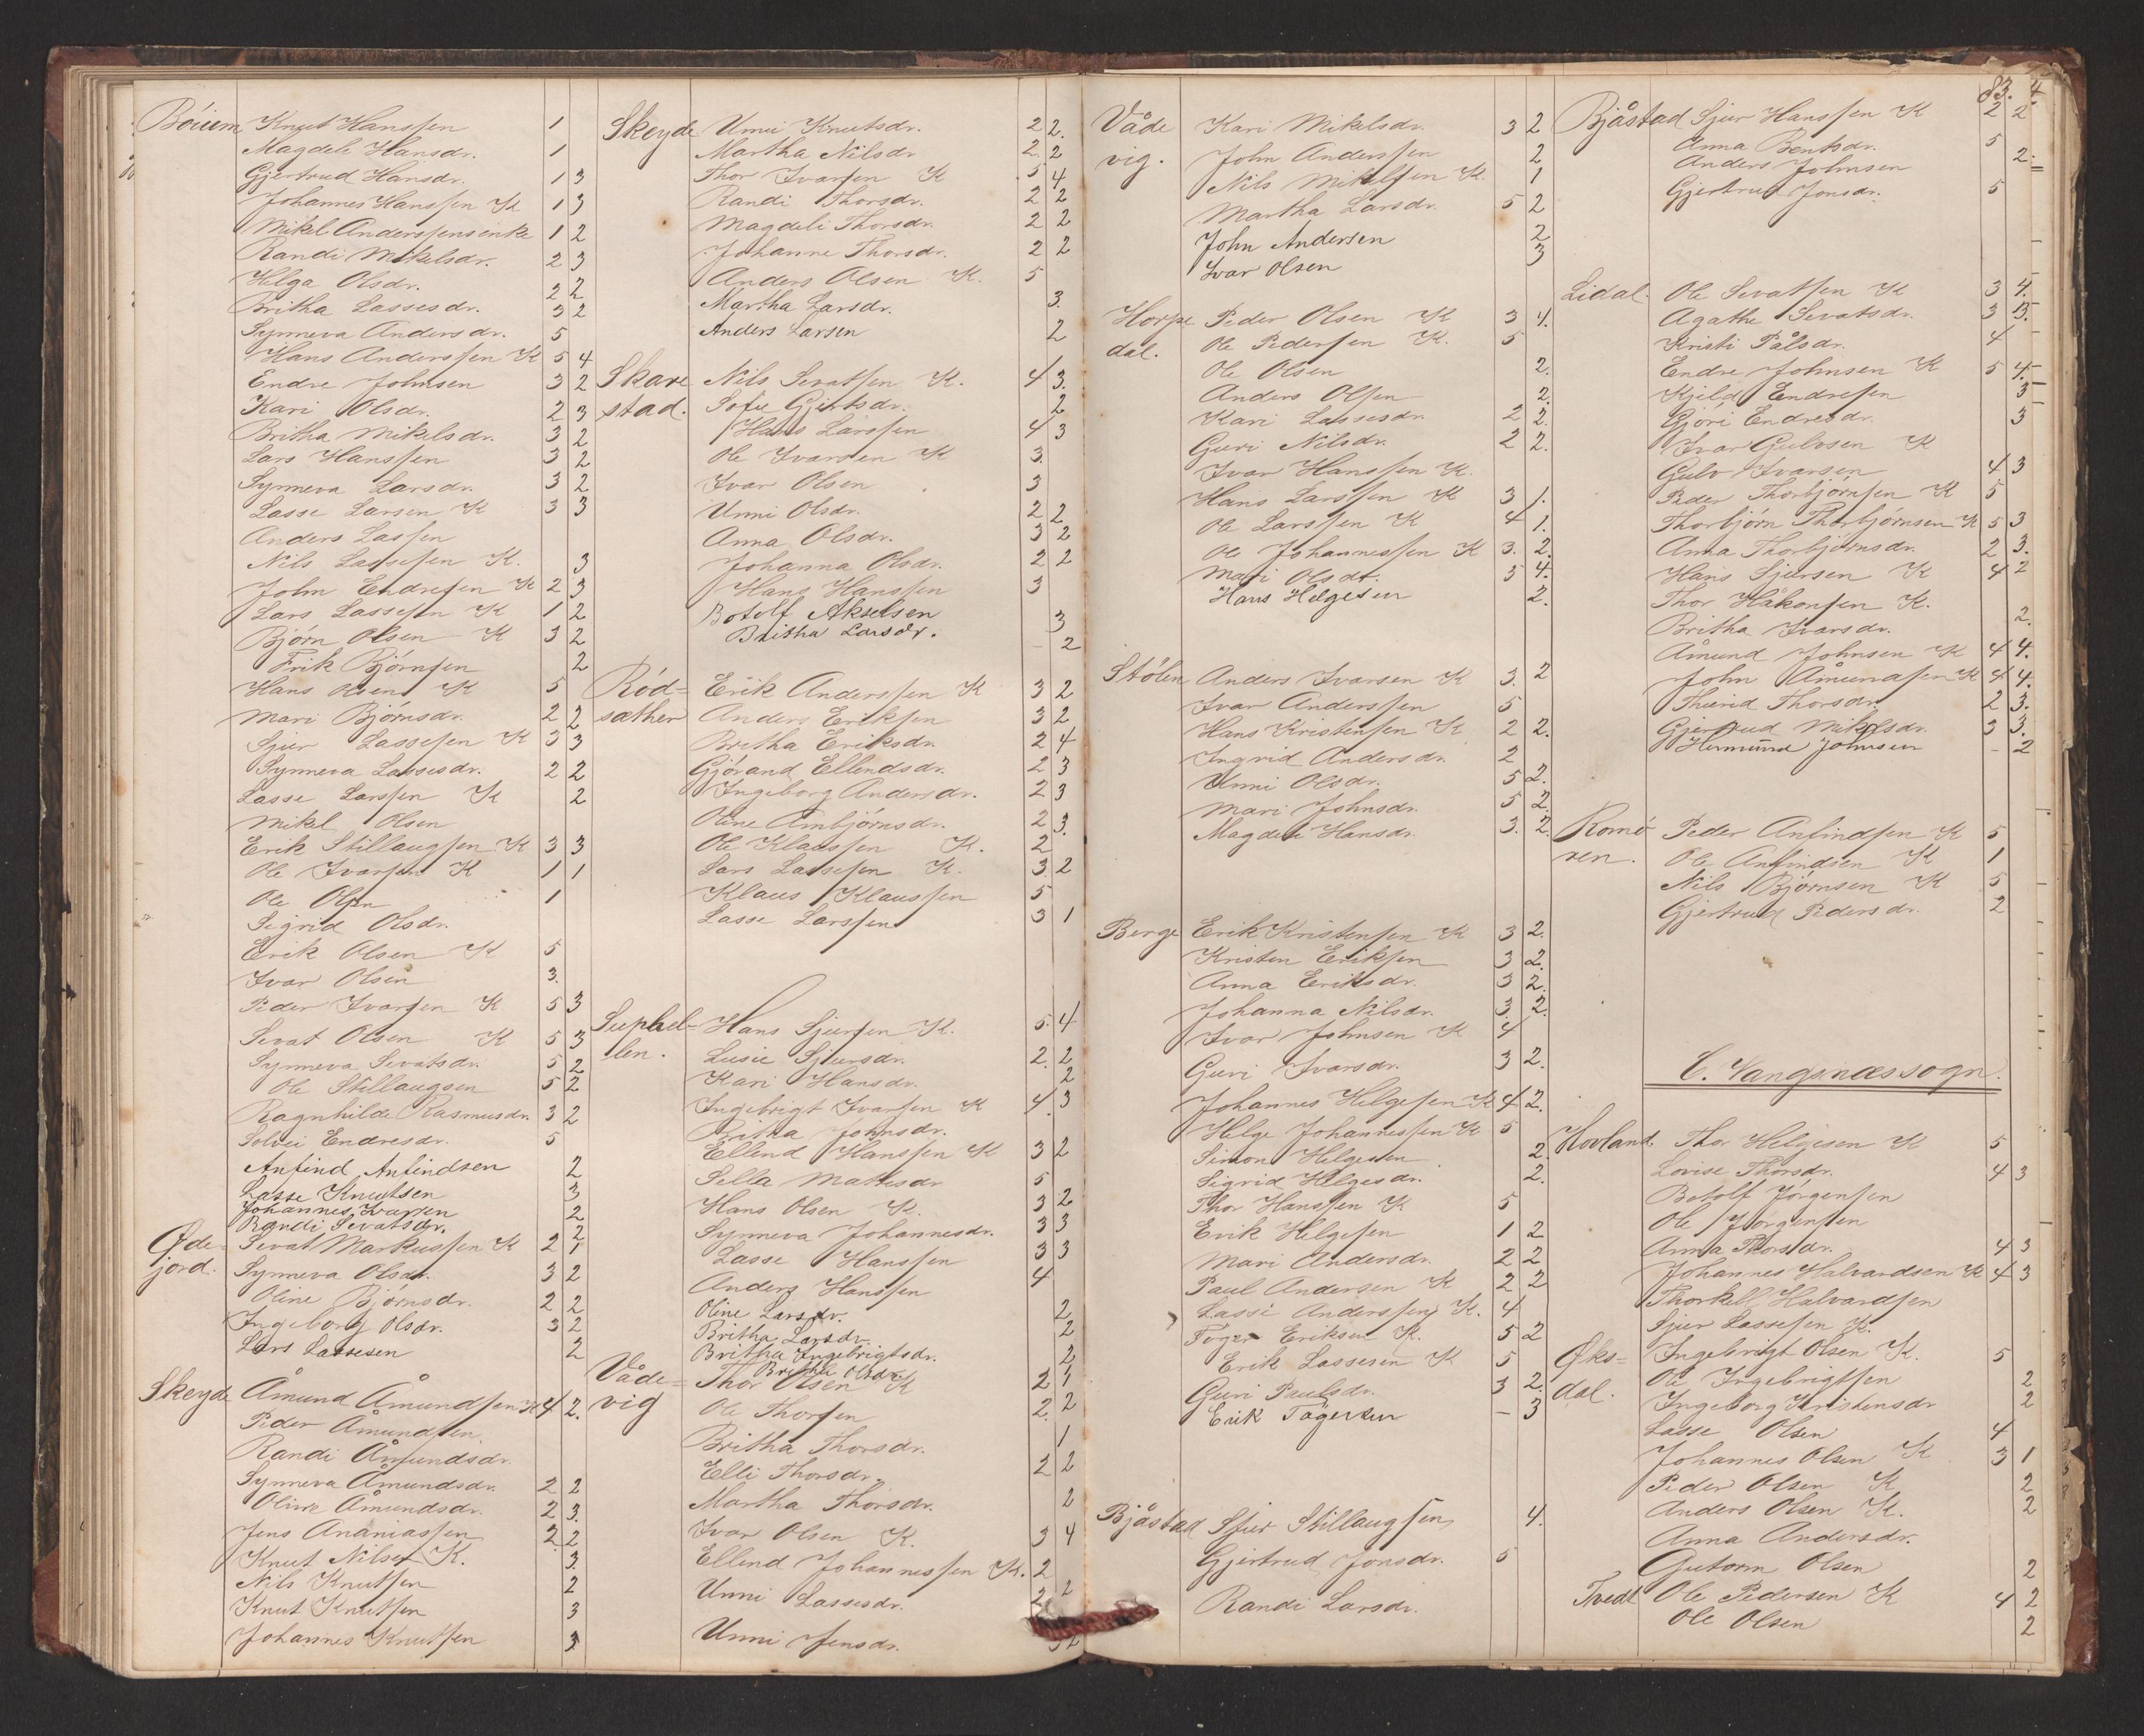 Bóium Knut Hanssen 1
Magdeli Hansdr. 1
Gjertrud Hansdr. 1 3
Johannes Hanssen K 1 3
Mikel Anderssens enke 1 2
Randi Mikelsdr. 2 3
Helga Olsdr. 2 2
Britha Lassesdr. 3 2
Synneva Andersdr. 5
Hans Anderssen K 5 4
Endre Johnsen 3 2
Kari Olsdr. 2 3
Britha Mikelsdr. 3 2
Lars Hanssen 3 2
Synneva Larsdr. 3 2
Lasse Larsen K 3 3
Anders Lassen
Nils Lassesen K. 3
John Endresen K 2 3
Lars Lassesen K 1 2
Bjørn Olsen K 3 2
Erik Bjørnsen 2
Hans Olsen K 5
Mari Bjørnsdr. 2 2
Sjur Lassesen K 3 3
Synneva Lassesdr. 2 2
Lasse Larssen K 2
Mikel Olsen
Erik Stillaugsen K 3 3
Ole Ivarsen K 1 1
Ole Olsen 1
Sigrid Olsdr.
Erik Olsen K 5
Ivar Olsen 3.
Peder Ivarsen K 5 3
Sevat Olsen K 5 3
Synneva Sevatsdr. 5 2
Ole Stillaugsen 5 2
Ragnhilde Rasmusdr. 3 2
Solvei Endresdr. 5
Anfind Anfindsen 2
Lasse Knutsen 3
Johannes Ivarsen 2
Randi Sevatsdr. 2
Øde= Sevat Markussen K 2 1
jord. Synneva Olsdr. 3 2
Oline Bjørnsdr. 2 2
Ingeborg Olsdr. 3 2
Lars Lassesen 2
Skeyde Åmund Åmundsen K 4 2.
Peder Åmundsen
Randi Åmundsdr.
Synneva Åmundsdr. 2 2
Oline Åmundsdr. 2 3.
Jens Ananiassen 2 2
Knut Nilsen K. 3
Nils Knutsen 2
Knut Knutsen 3
Johannes Knutsen 3
Skeyde Unni Knutsdr. 2 2.
Martha Nilsdr 2 2
Thor Ivarsen K 5 4
Randi Thorsdr. 2 2
Magdeli Thorsdr. 2 2
Johanne Thorsdr. 2 2
Anders Olsen K. 5
Martha Larsdr. 3.
Anders Larsen 2
Skare Nils Sevatsen K. 4 3.
stad. Sofie Gjertsdr. 2
Hans Larssen 4 3
Ole Ivarsen K 3
Ivar Olsen 3
Unni Olsdr. 2 2
Anna Olsdr. 3 2
Johanna Olsdr. 2 2
Hans Hanssen 3
Botolf Akselsen 3
Britha Larsdr. - 2
Ród= Erik Anderssen K 3 2
sæther Anders Eriksen 3 2
Britha Eriksdr 2 4
Gjórand Ellendsdr. 2 3
Ingeborg Andersdr. 2 3
Oline Arnbjórnsdr. 2 3.
Ole Klaussen K. 2
Lars Lassesen K. 3 2
Klaus Klaussen 5
Lasse Larssen 3 1
Suphel- Hans Sjursen K. 5. 4
len. Lusie Sjursdr. 2. 2
Kari Hansdr. 2
Ingebrigt Ivarsen K 4. 3
Britha Johnsdr.
Ellend Hanssen K 3 2
Sella Mattisdr 5
Hans Olsen K. 3 2
Synneva Johannesdr. 3 3
Lasse Hanssen 3 3
Anders Hanssen 4
Oline Larsdr. 2
Britha Larsdr. 2
Britha Ingebrigtsdr. 2
Britha Olsdr.
Våde= Thor Olsen K 2 1
vig Ole Thorsen 2. 2
Britha Thorsdr. 1
Elli Thorsdr. 2 2
Martha Thorsdr. 2
Ivar Olsen K. 3 4
Ellend Johannessen K. 2
Unni Lassesdr. 2 2
Unni Jensdr. 3 2
83. 4.
Våde Kari Mikelsdr. 3 2
vig. John Anderssen 2
Nils Mikelsen K. 1
Martha Larsdr. 5 2
John Andersen 2
Ivar Olsen 3
Horpe Peder Olsen K 3 4.
dal. Ole Pedersen K. 5
Ole Olsen 2.
Anders Olsen 2.
Kari Lassesdr 2 2.
Guri Nilsdr. 2 2.
Ivar Hanssen K.
Hans Larssen K 3 1.
Ole Larssen K 4 1.
Ole Johannessen K 3. 2.
Mari Olsdr. 3 4.
Hans Helgesen 2.
Stólen Anders Ivarsen K 3. 2
Ivar Anderssen 5
Hans Kristensen K 2 2.
Ingrid Andersdr. 2
Unni Olsdr. 5 2.
Mari Johnsdr. 5 2.
Magdeli Hansdr. 3. 2.
Berge Erik Kristensen K 3 2.
Kristen Eriksen 3 2.
Anna Eriksdr. 3 2.
Johanna Nilsdr. 3. 2.
Ivar Johnsen K 4
Guri Ivarsdr. 3 2.
Johannes Helgesen K 4 2.
Helge Johannessen K 5
Simon Helgesen 2.
Sigrid Helgesdr. 2.
Thor Hanssen K 5
Erik Helgesen 1 2
Mari Andersdr. 2 2
Paul Andersen K 2 2
Lasse Anderssen K. 4
Tøger Eriksen K. 5 2
Erik Lassesen K 5
Guri Paulsdr. 3 2.
Erik Tøgersen - 3
Bjåstad Sjur Stillaugsen 4.
Gjertrud Jonsdr. 5
Randi Larsdr.
Bjåstad Sjur Hanssen K 2 2
Anna Bentsdr. 5
Anders Johnsen 2.
Gjertrud Jonsdr. 5
Lidal. Ole Sevatsen K 3 4.
Agathe Sevatsdr. 3 3.
Kristi Pålsdr. 4
Endre Johnsen K 5 4.
Kjeld Endresen 3
Gjóri Endresdr. 3
Ivar Gulvsen K
Gulv Ivarsen 4 3
Peder Thorbjórnsen K 5
Thorbjórn Thorbjórnsen K 5 3
Anna Thorbjórnsdr. 2 3.
Hans Sjursen K 4 2
Thor Håkonsen K.
Britha Ivarsdr. 2.
Åmund Johnsen K 4 4.
John Åmundsen K 4 4.
Thurid Thorsdr. 2 3.
Gjertrud Mikelsdr. 3 3.
Hermund Johnsen - 2
Romó Peder Anfindsen K 5
ren. Ole Anfindsen K 1
Nils Bjórnsen K 5
Gjertrud Pedersdr. 2
C. Vangsnæs sogn.
Hovland. Thor Helgesen K 5
Lovise Thorsdr. 4 3
Botolf Jórgensen
Ole Jórgensen
Anna Thorsdr. 4 3
Johannes Halvardsen K 4 3
Thorkell Halvardsen
Sjur Lassesen K.
Øks= Ingebrigt Olsen K. 5
dal. Ole Ingebrigtsen 2
Ingeborg Kristensdr 2
Lasse Olsen 4
Johannes Olsen K 3 1
Peder Olsen K 2
Anders Olsen K. 2
Anna Andersdr.
Gutorm Olsen 2
Tvedt Ole Pedersen K 4 2
Ole Olsen 2